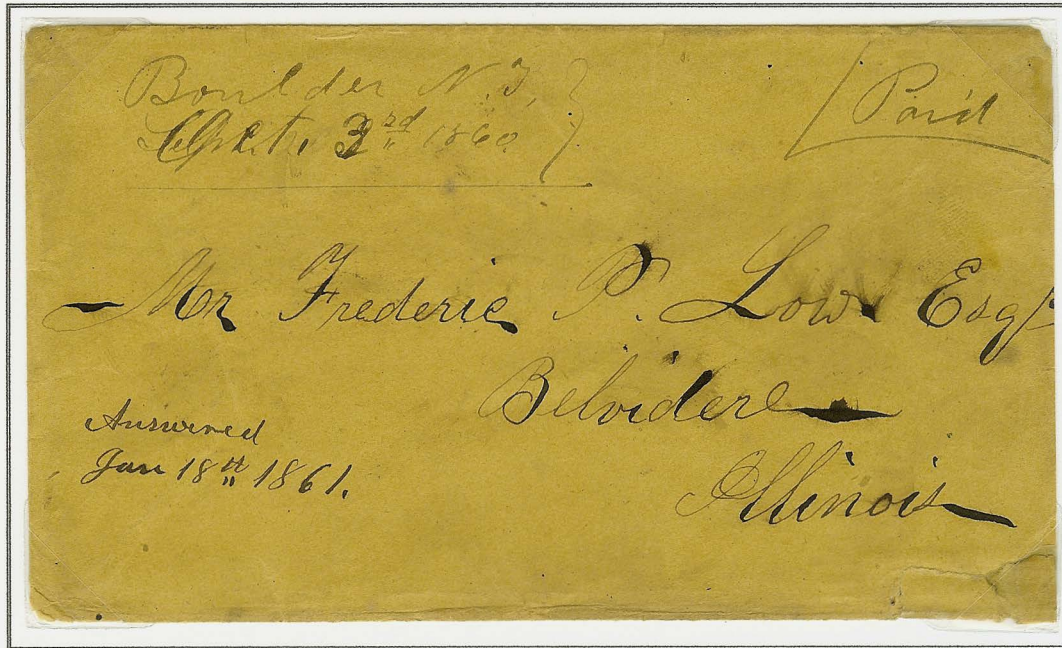 Boulder N.T.
Oct. 3rd 1860
Paid
Mr Frederic P. Low Esqr
Belvidere
Illinois
Answered
Jan 18th 1861.